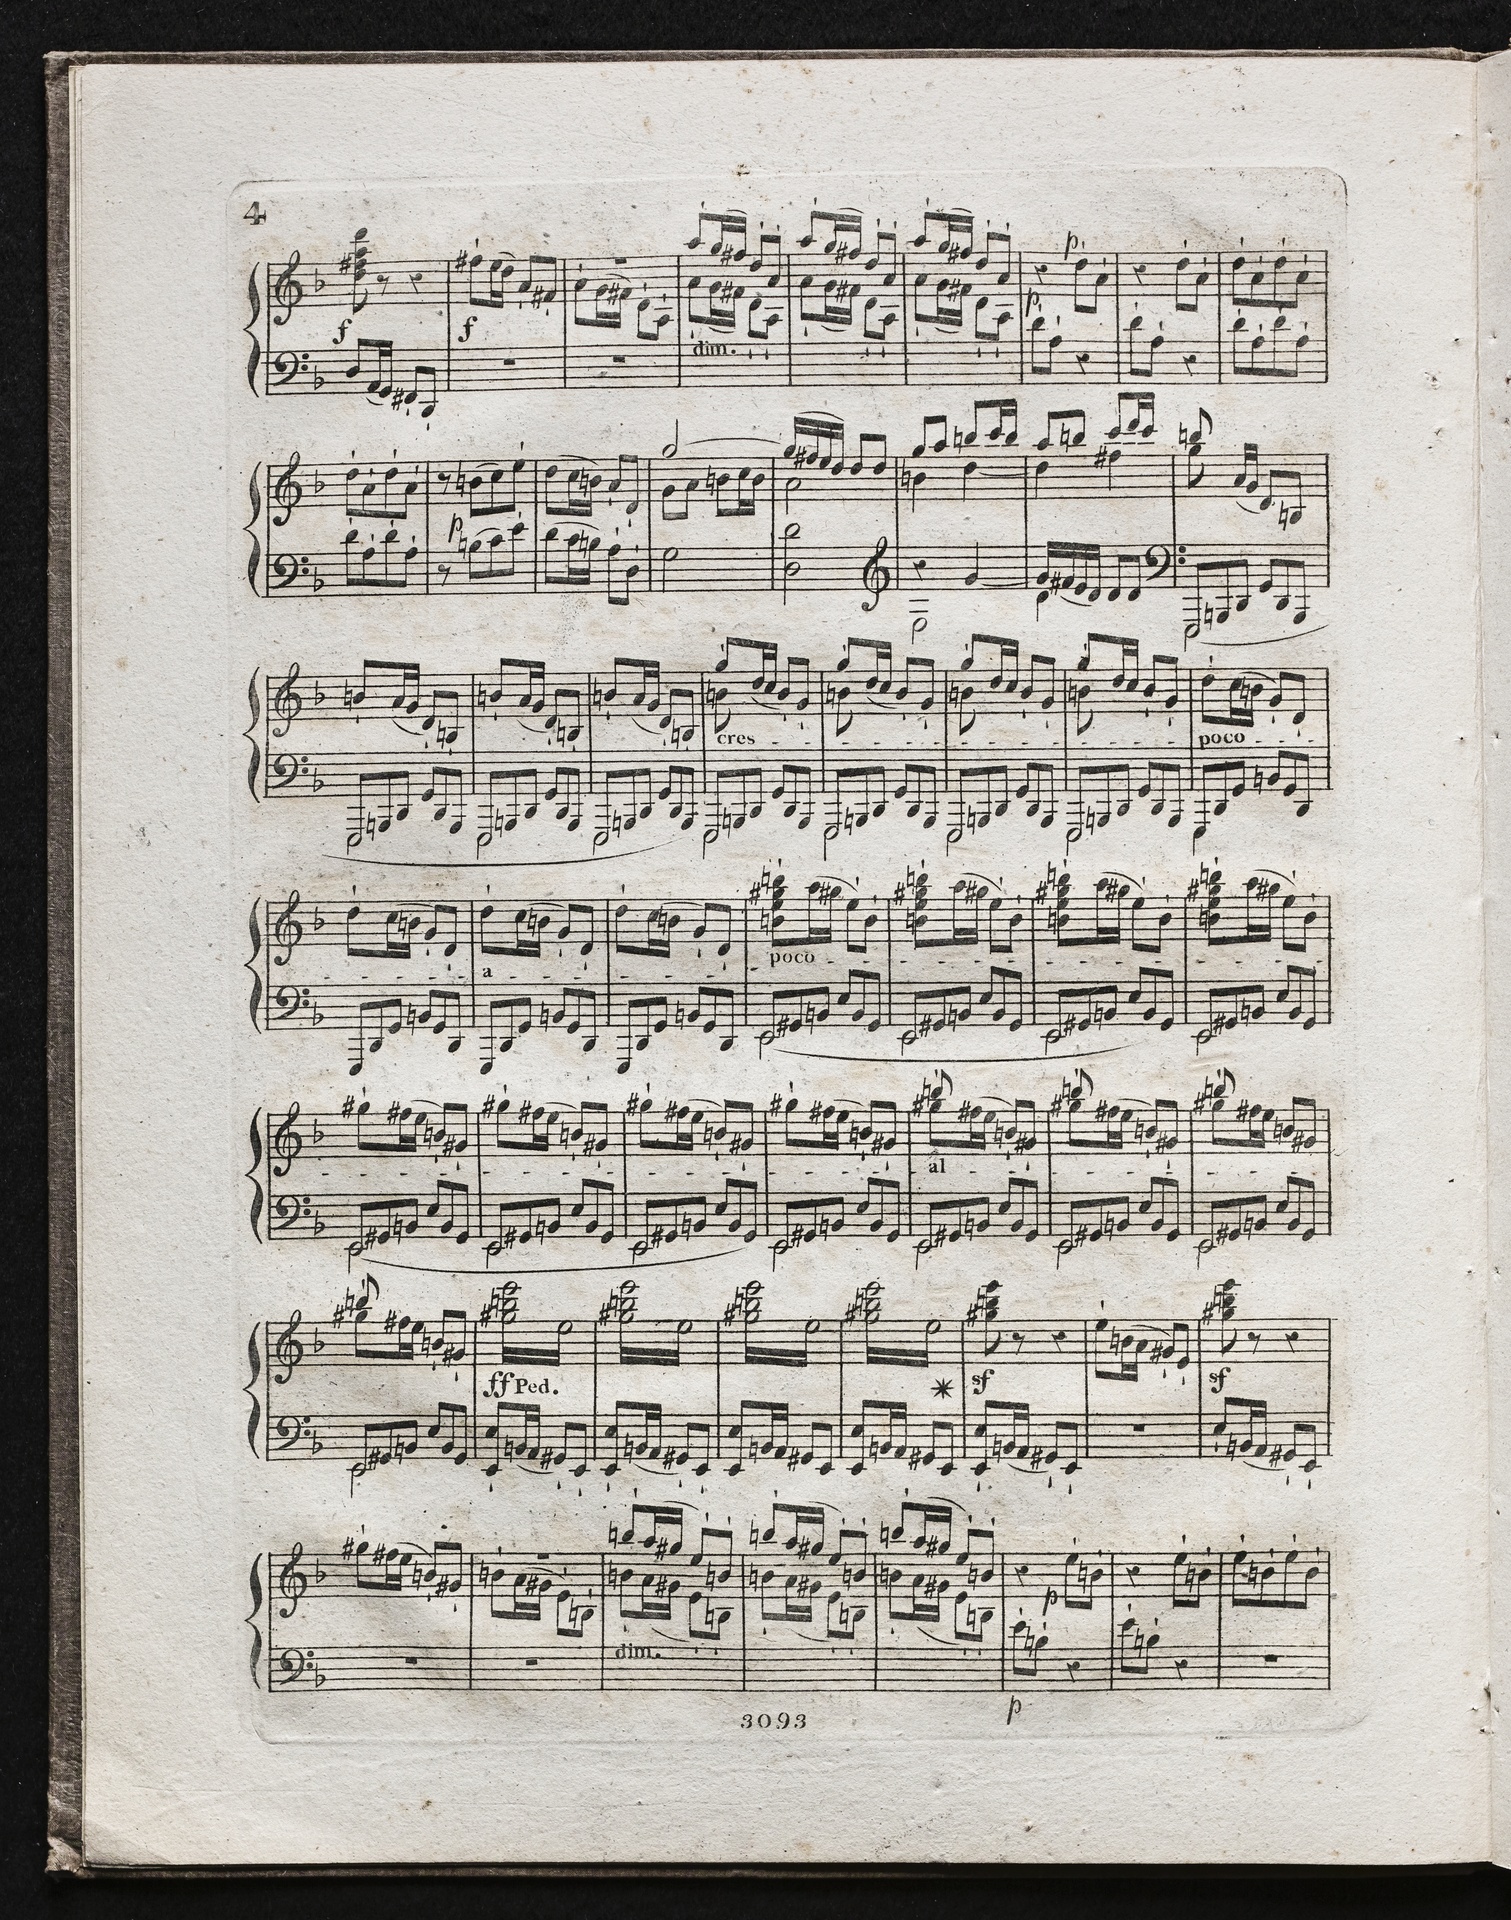 4
p
f f p
dim.
p
cres poco
a poco
al
ff Ped. sf sf
p
dim.
p
3093